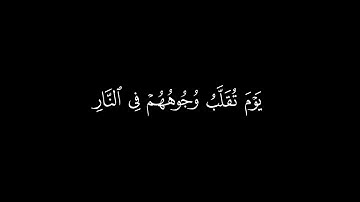 يَوْمَ تُقَلَّبُ وُجُوهُهُمْ فِى ٱلنَّارِ